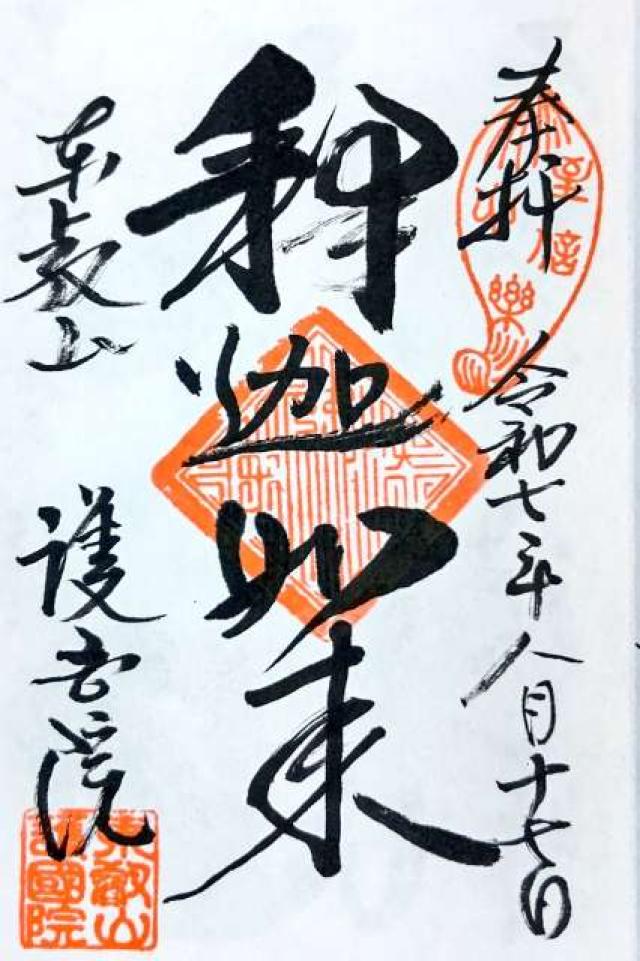 奉拝
令和七年八月十七日
釈迦如来
東叡山
護国院
東叡山
護國院